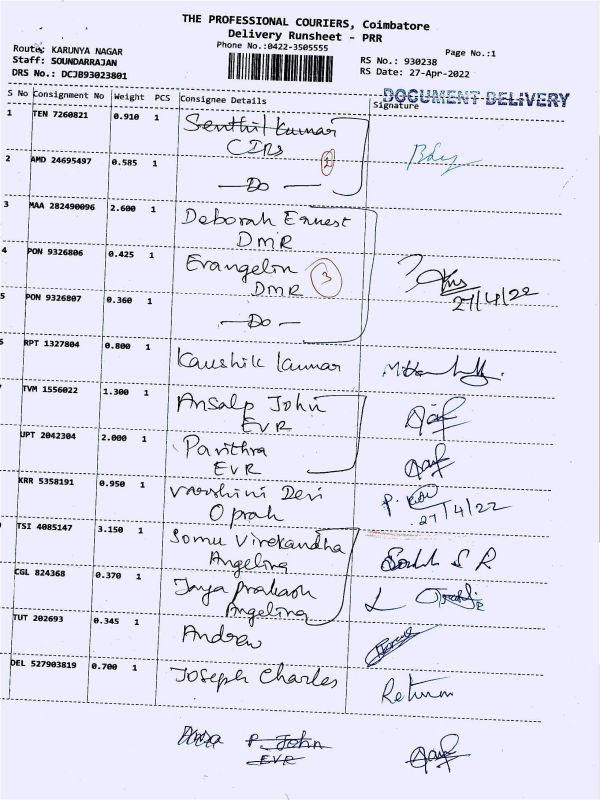 THE PROFESSIONAL COURIERS, Coimbatore
Delivery Runsheet - PRR
Phone No.:0422-3505555
Page No.:1
Route: KARUNYA NAGAR
Staff: SOUNDARRAJAN
DRS No.: DCJB93023801
RS No.: 930238
RS Date: 27-Apr-2022
DOCUMENT DELIVERY
S No Consignment No Weight PCS Consignee Details Signature
1 TEN 7260821 0.910 1 Senthil Kumar
CIRs
2
2 AMD 24695497 0.585 1 — Do —
3 MAA 282490096 2.600 1 Deborah Ernest
DMR
4 PON 9326806 0.425 1 Evangelin
DMR
3
27/4/22
5 PON 9326807 0.360 1 — Do —
6 RPT 1327804 0.800 1 Kaushik Kumar
TVM 1556022 1.300 1 Ansalp John
EVR
UPT 2042304 2.000 1 Pavithra
EVR
KRR 5358191 0.950 1 Varshini Devi
Oprah
P.
27/4/22
TSI 4085147 3.150 1 Somu Virekandha
Angelina
CGL 824368 0.370 1 Jaya prakash
Angelina
TUT 202693 0.345 1 Andrew
DEL 527903819 0.700 1 Joseph Charles Return
P. John
EVR